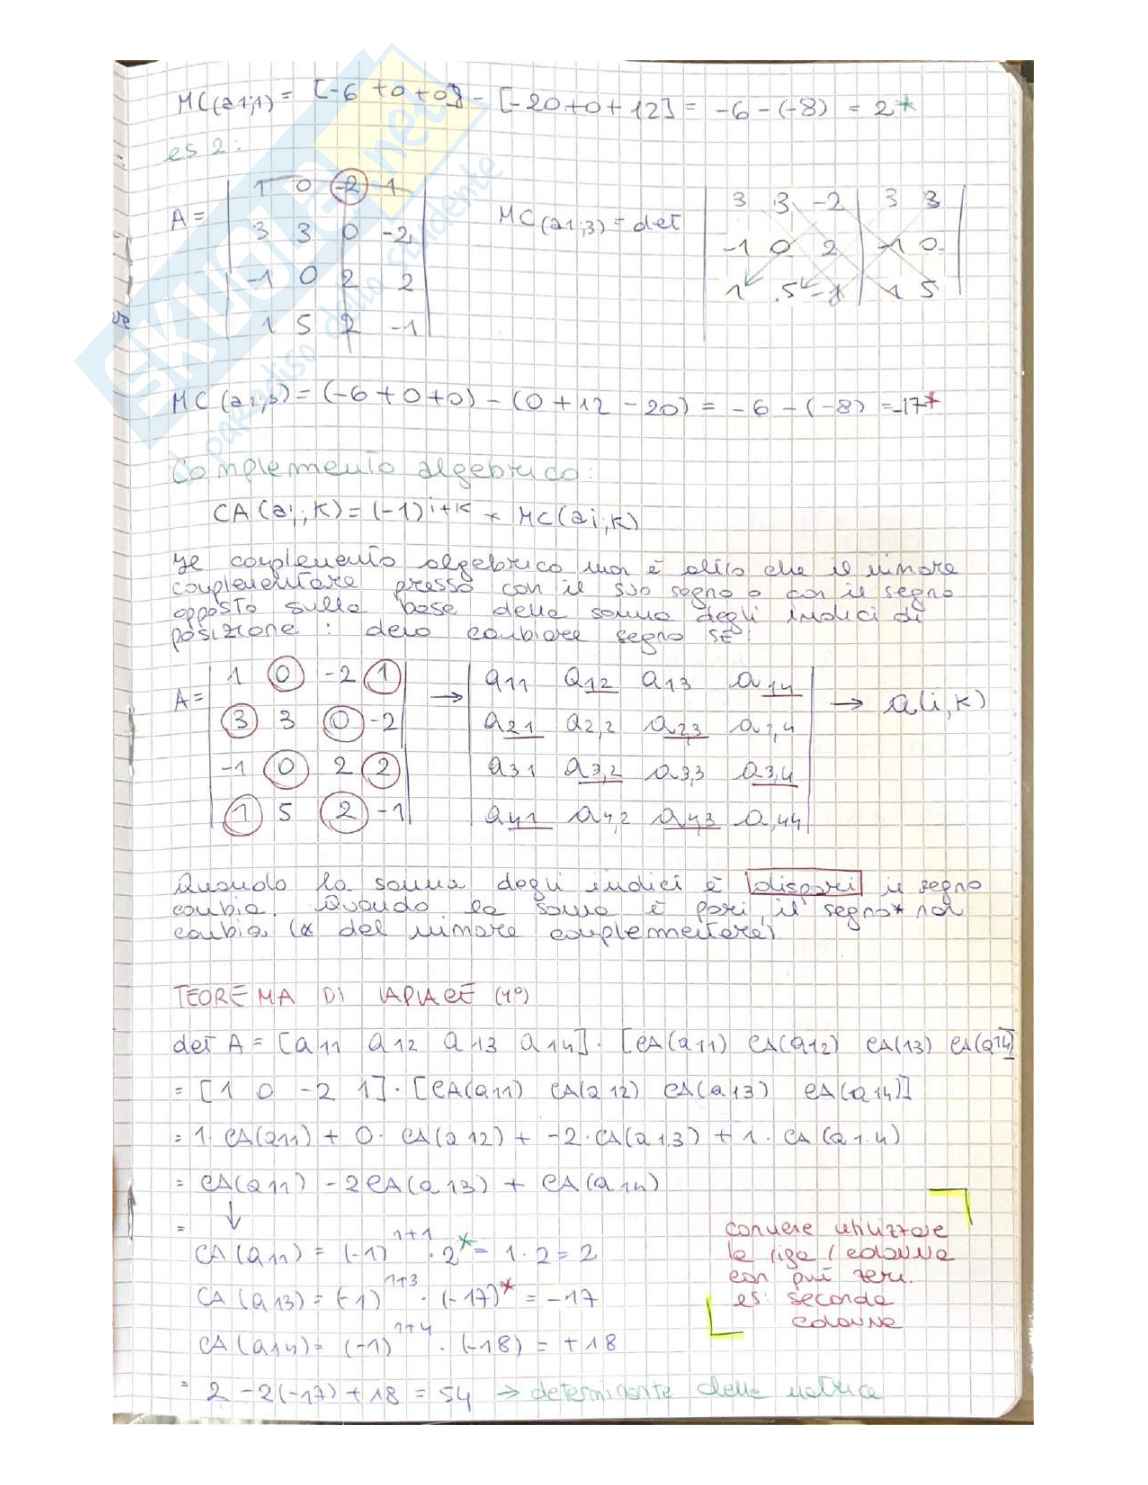 MC(a1;1) = [-6 +0+0] - [-20+0+12] = -6-(-8) = 2*
es 2:
A = | 1 0 -2 1 |
| 3 3 0 -2 |
| -1 0 2 2 |
| 1 5 2 -1 |
MC(a1;3) = det | 3 3 -2 | 3 3 |
| -1 0 2 | -1 0 |
| 1 5 -1 | 1 5 |
MC(a1,3) = (-6+0+0) - (0+12-20) = -6-(-8) = -17*
Complemento algebrico:
CA(ai,k) = (-1)^i+k × MC(ai,k)
Il complemento algebrico non è altro che il minore
complementare presso con il suo segno o con il segno
opposto sulla base della somma degli indici di
posizione: devo cambiare segno SE:
A = | 1 0 -2 1 | → | a11 a12 a13 a14 | → a(i,k)
| 3 3 0 -2 | | a21 a2,2 a2,3 a2,4 |
| -1 0 2 2 | | a31 a3,2 a3,3 a3,4 |
| 1 5 2 -1 | | a41 a4,2 a43 a,44 |
Quando la somma degli indici è dispari il segno
cambia. Quando la somma è pari, il segno* non
cambia (* del minore complementare)
TEOREMA DI LAPLACE (1°)
det A = [a11 a12 a13 a14] · [CA(a11) CA(a12) CA(13) CA(a14)]
= [1 0 -2 1] · [CA(a11) CA(a12) CA(a13) CA(a14)]
= 1· CA(a11) + 0· CA(a12) + -2·CA(a1,3) + 1· CA(a1.4)
= CA(a11) -2CA(a13) + CA(a14)
= ↓
CA(a11) = (-1)^1+1 · 2* = 1·2 = 2
CA(a13) = (-1)^1+3 · (-17)* = -17
CA(a14) = (-1)^1+4 · (-18) = +18
= 2 -2(-17)+18 = 54 → determinante della matrice
conviene utilizzare
la riga / colonna
con più zeri.
es: seconda
colonna
SKUOLA.net
il paradiso dello studente